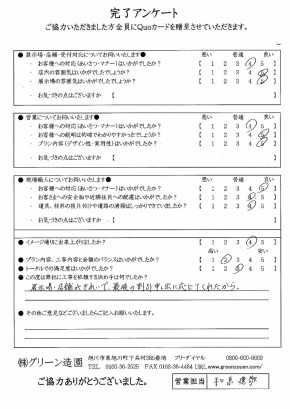 完了アンケート
ご協力いただきました方全員にQuoカードを贈呈させていただきます。
● 展示場・店舗・受付対応についてお伺いいたします● 悪い 普通 良い
・お客様への対応(あいさつ・マナー)はいかがでしたか? 【 1 2 3 4 5 】
・店内の雰囲気はいかがでしたでしょうか? 【 1 2 3 4 5 】
・展示場の雰囲気はいかがでしたか? 【 1 2 3 4 5 】
・お気づきの点はございますか 【 】
●営業についてお伺いいたします● 悪い 普通 良い
・お客様への対応(あいさつ・マナー)はいかがでしたか? 【 1 2 3 4 5 】
・お客様への説明は明確でわかりやすかったでしょうか? 【 1 2 3 4 5 】
・プラン内容(デザイン性・実用性)はいかがでしたか? 【 1 2 3 4 5 】
・お気づきの点はございますか 【 】
●現場職人についてお伺いいたします● 悪い 普通 良い
・お客様への対応(あいさつ・マナー)はいかがでしたか? 【 1 2 3 4 5 】
・お客さまへの安全面や近隣住民への配慮はいかがでしたか? 【 1 2 3 4 5 】
・建具、材料の後片付けや道路の清掃はしっかりできていましたか? 【 1 2 3 4 5 】
・お気づきの点はございますか 【 】
● イメージ通りに出来上がりましたか? 【 1 2 3 4 5 】
高い 安い
● プラン内容、工事内容と金額のバランスはいかがですか? 【 1 2 3 4 5 】
● トータルでの満足度はいかがでしたか? 【 1 2 3 4 5 】
● この度は弊社に工事を依頼する決め手は何でしたか?
展示場・店舗がきれいで、最後の割引申し出に応じてくれたから。
● その他ご意見などございましたらご記入お願いいたします。
㈱グリーン造園
旭川市東旭川町下兵村385番地 フリーダイヤル 0800-800-6669
TEL 0166-36-2525 FAX 0166-36-4484 URL www.greenzouen.com/
ご協力ありがとうございました。 営業担当